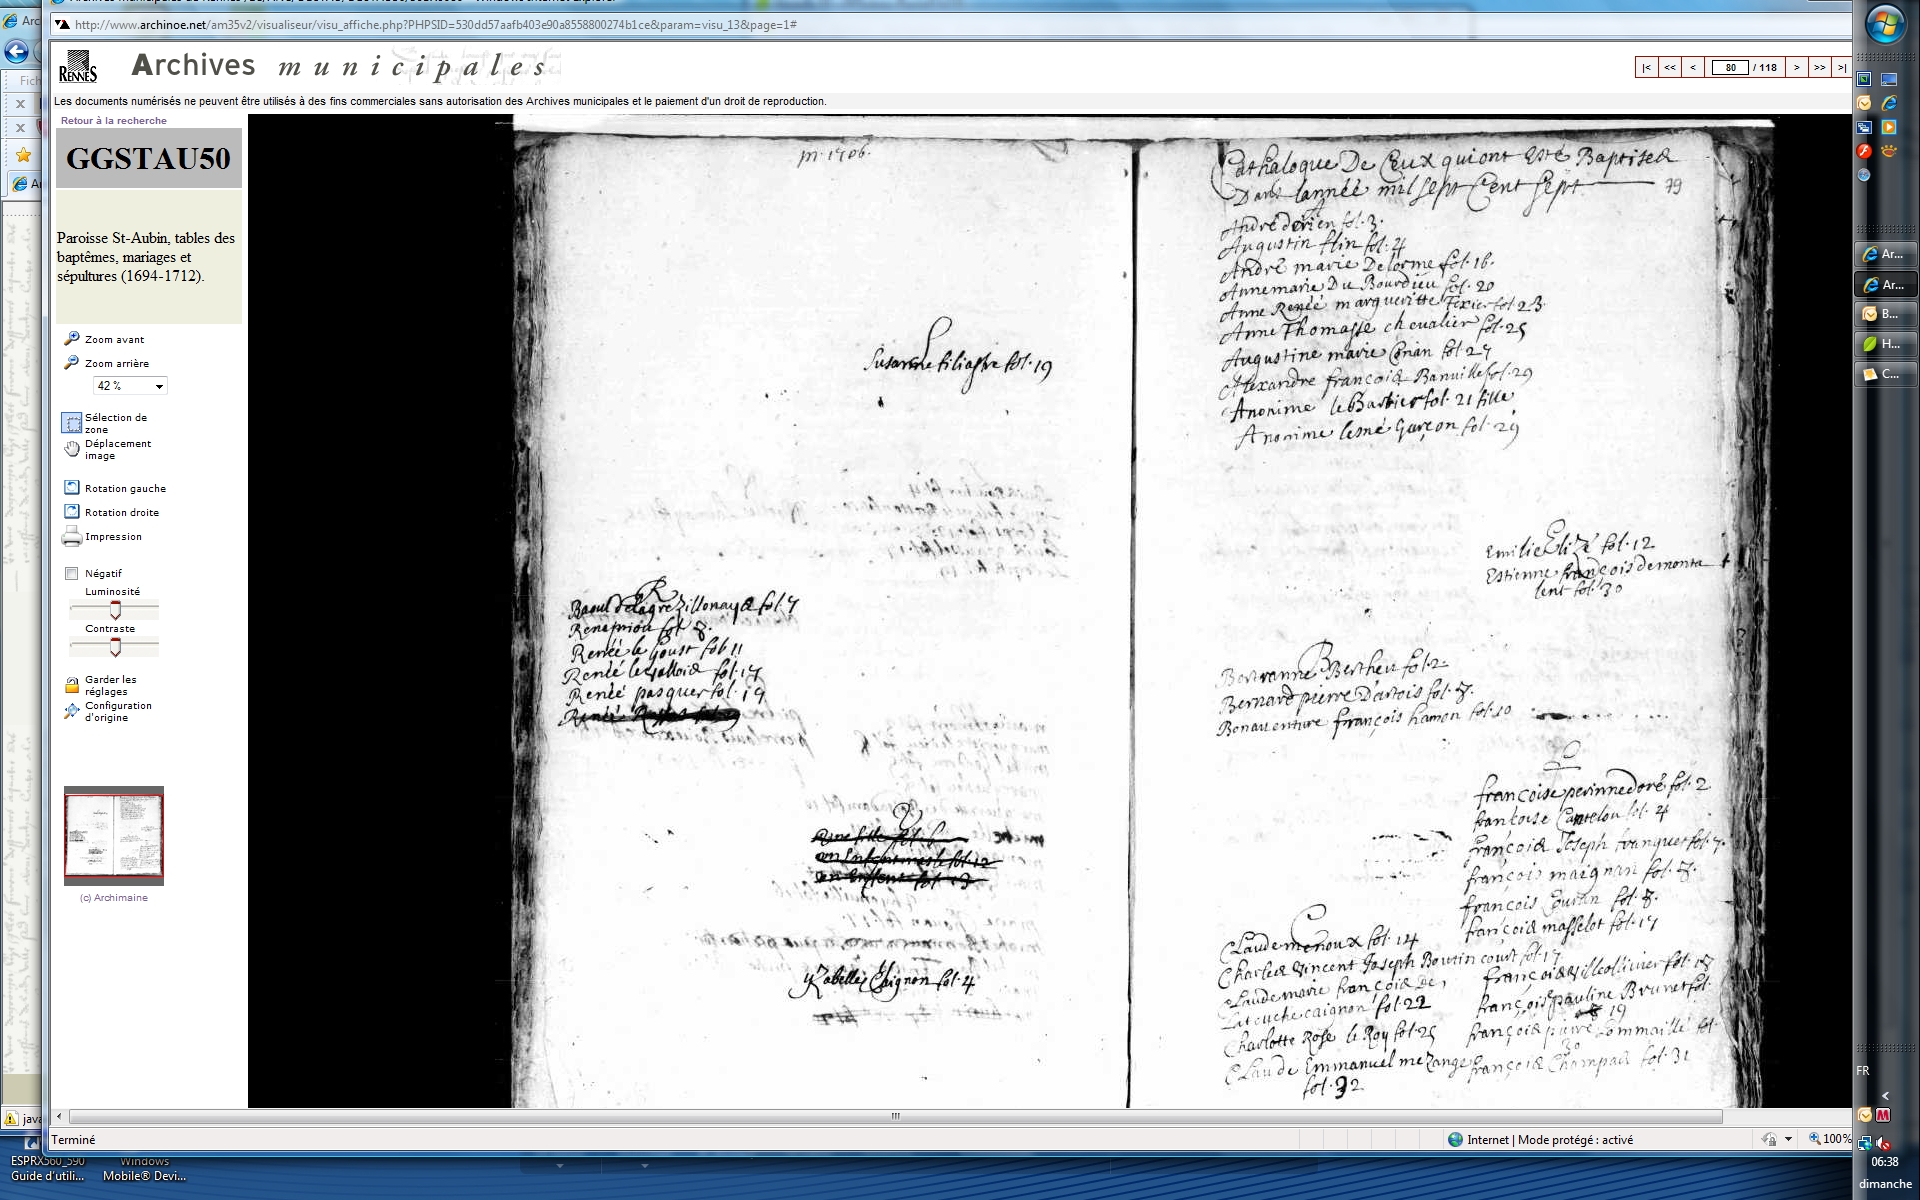 Archives Municipales de Rennes
http://www.archinoe.net/am35v2/visualiseur/visu_affiche.php?PHPSID=530dd57aafb403e90a8558800274b1ce&param=visu_13&page=1#
RENNES
Archives municipales
|< << < 80 / 118 > >> >|
Les documents numérisés ne peuvent être utilisés à des fins commerciales sans autorisation des Archives municipales et le paiement d'un droit de reproduction.
Retour à la recherche
GGSTAU50
Paroisse St-Aubin, tables des
baptêmes, mariages et
sépultures (1694-1712).
Zoom avant
Zoom arrière
42 %
Sélection de
zone
Déplacement
image
Rotation gauche
Rotation droite
Impression
Négatif
Luminosité
Contraste
Garder les
réglages
Configuration
d'origine
(c) Archimaine
m. 1706.
S
Susanne filiastre fol. 19
R
Raoul fol. 7
Rene priou fol. 8.
Renée le Goust fol. 11
Renée fol. 17
Renée pasquer fol. 19
Y
Yzabelle Chaignon fol. 4
Cathalogue De Ceux qui ont Esté Baptisez
Dans lannée mil sept Cent sept 79
A
André derien fol. 3.
Augustin flin fol. 4
André marie Delorme fol. 16.
Annemarie Du Bourdieu fol. 20
Anne Renée margueritte Texier fol. 23.
Anne Thomasse chevalier fol. 25
Augustine marie Conan fol. 27
Alexandre françois Banville fol. 29
Anonime le Barbier fol. 21 fille
Anonime lesné Garçon fol. 29
E
Emilie Elizé fol. 12
Estienne françois demonta
lent fol. 30
B
Bertranne Bertheu fol. 2.
Bernard pierre Dartois fol. 8.
Bonaventure françois hamon fol. 10
F
françoise perinne doré fol. 2
francoise Cantelou fol. 4
françois Joseph franquet fol. 7.
françois maignan fol. 8.
françois Couran fol. 8.
françois masselot fol. 17
françois villeollivier fol. 18
françoise pauline Brunet fol.
19
françois pierre Lommaillé fol.
30
françois Champais fol. 31
C
Claude menoux fol. 14
Charles Vincent Joseph Boutin court fol. 17
Claude marie françois De
Latouche caignon fol. 22
Charlotte Rose le Roy fol. 25
Claude Emmanuel mezange
fol. 32
Terminé
Internet | Mode protégé : activé
100%
ESPRX560_590
Guide d'utili...
Windows
Mobile® Devi...
Ar...
Ar...
B...
H...
C...
FR
06:38
dimanche